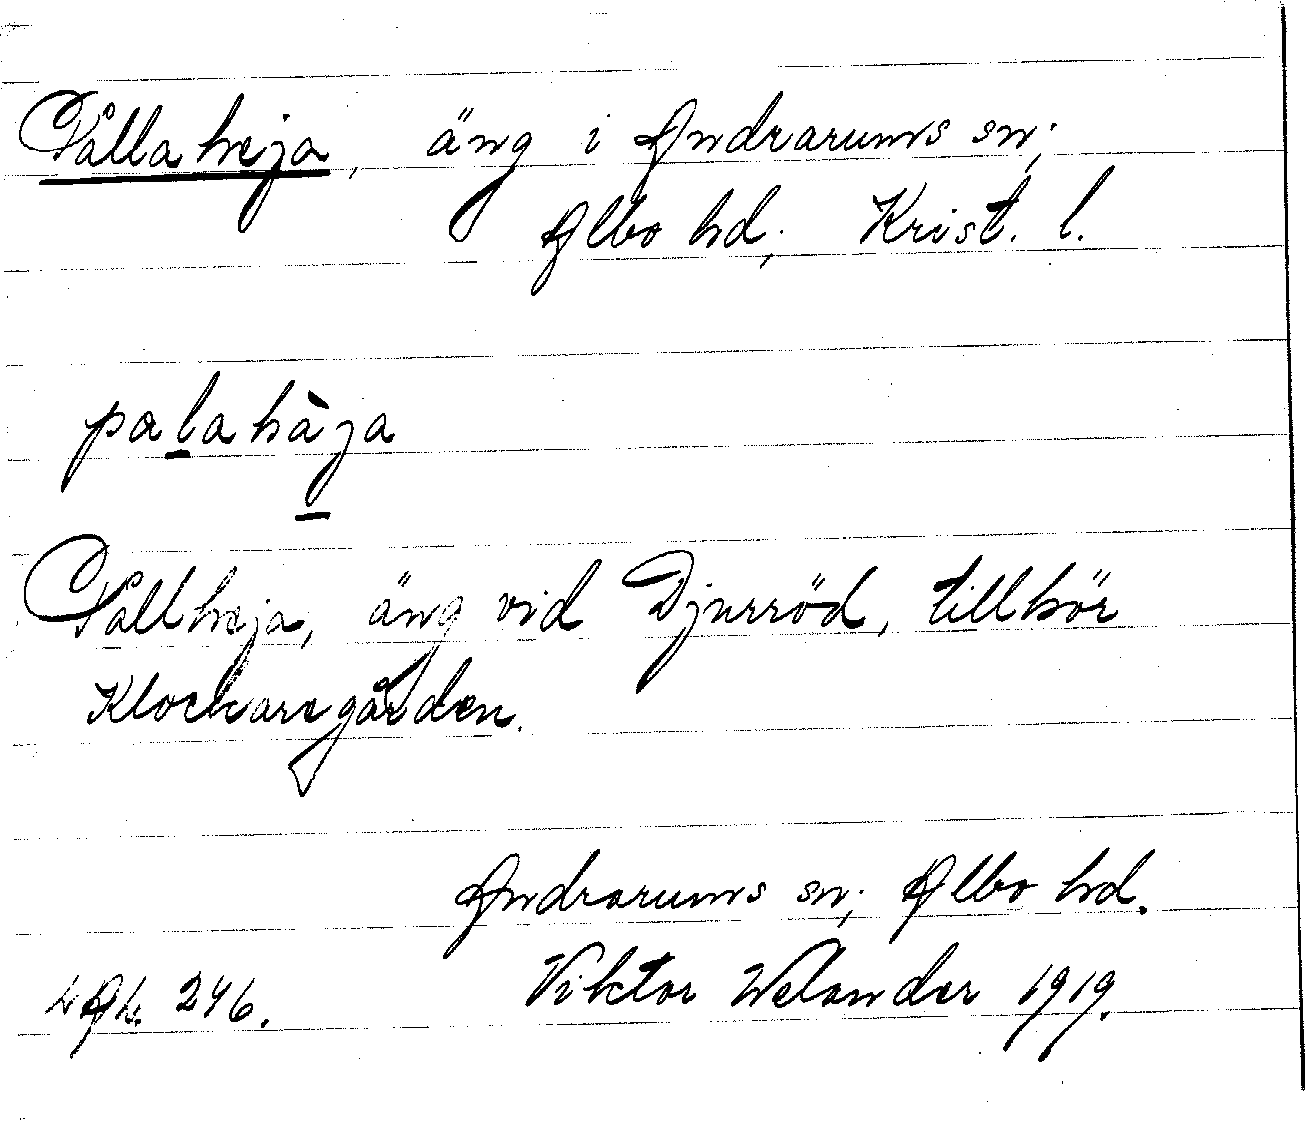 Pallaheja, äng i Andrarums sn;
Albo hd; Krist. l.
palahàja
Pallheja, äng vid Djurröd, tillhör
Klockaregården.
Andrarums sn; Albo hd.
Viktor Welander 1919.
LAfk. 246.